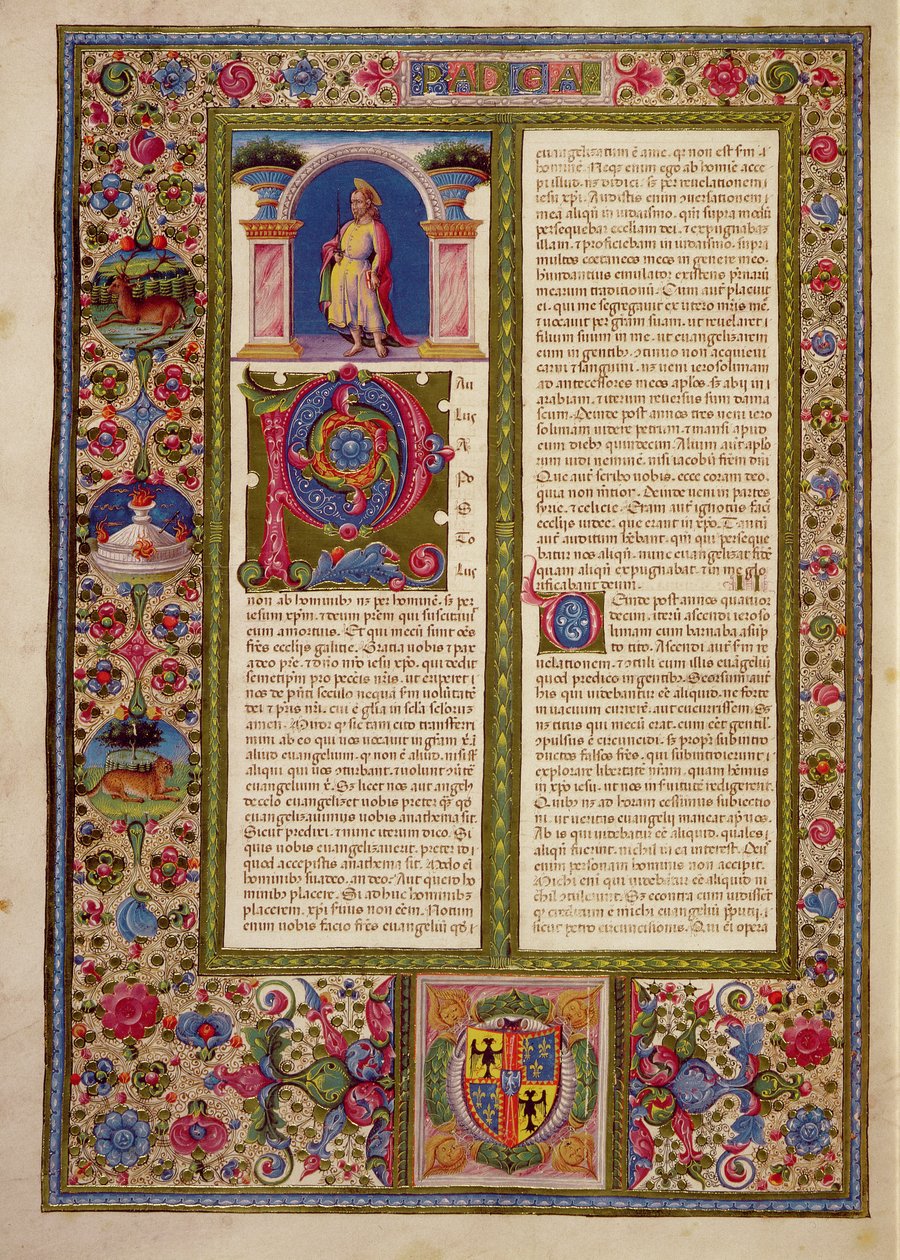 P AD GA
P Au
Lus
A
Po
S
To
Lus
non ab hominibꝫ nꝫ per hominē. sꝫ per
iesum xp̄m. ⁊ deum prēm qui suscitauit
eum amortuis. Et qui mecū sunt oēs
frēs eccliis galitie. Gratia uobis ⁊ pax
adeo prē. ⁊ dn̄o nr̄o iesu xp̄o. qui dedit
semetip̄m pro peccis nr̄is. ut eriperet
nos de pn̄ti seculo nequā s̄m uolūtatē
dei ⁊ pr̄is nr̄i. cui ē glīa in sclā scloruꝫ
amen. Miror qꝫ sic tam cito transferri
mini ab eo qui uos uocauit in grām
aliud euangelium. qꝫ non ē aliud. nisi sūt
aliqui qui uos ɔturbant. ⁊ uolunt
euangelium xp̄i. Sꝫ licet nos aut angel̄s
de celo euangelizet uobis preter qꝫ qd̄
euangelizauimus uobis anathema sit.
Sicut predixi. ⁊ nunc iterum dico. Si
quis uobis euangelizauerit. preter id
quod accepistis anathema sit. Modo eī
hominibꝫ suadeo. an deo? Aut quero ho
minibꝫ placere. Si adhuc hominibꝫ
placerem. xp̄i seruus non eēm. Notum
enim uobis facio frēs euangeliū qd̄
euangelizatum ē a me. qꝫ non est s̄m
hominē. Neqꝫ enim ego ab homīe acce
pi illud. nꝫ didici. sꝫ per reuelationem
iesu xp̄i. Audistis enim ɔuersationem
mea aliqn̄ in iudaismo. qm̄ supra modū
persequebar eccliam dei. ⁊ expugnabaꝫ
illam. ⁊ proficiebam in iudaismo. supra
multos coetaneos meos in genere meo.
hundantius emulator existens pr̄narū
mearum traditionū. Cum aut̄ placuit
ei. qui me segregauit ex utero mr̄is mē.
⁊ uocauit per grām suam. ut reuelaret
filium suum in me. ut euangelizarem
eum in gentibꝫ. ɔtinuo non acquieui
carni ⁊ sanguini. nꝫ ueni ierosolimam
ad antecessores meos aplōs. sꝫ abii in
arabiam. ⁊ iterum reuersus sum dama
scum. Deinde post annos tres ueni iero
solimam uidere petrum. ⁊ mansi apud
eum diebꝫ quindecim. Alium aut̄ aplōr
um uidi neminē. nisi iacobū frēm dn̄i
Que aut̄ scribo uobis. ecce coram deo.
quia non mītior. Deinde ueni in partes
syrie. ⁊ celicie. Eram aut̄ ignotus faciē
eccliis iudee. que erant in xp̄o. Tantū
aut̄ auditum hēbant. qm̄ qui perseque
batur nos aliqn̄. nunc euangelizat fidē
quam aliqn̄ expugnabat. ⁊ in me glo
rificabant deum. II
Deinde post annos quatuor
decim. iterū ascendi ieroso
limam cum barnaba assūp
to tito. Ascendi aut̄ s̄m re
uelationem. ⁊ ɔtuli cum illis euāgeliū
quod predico in gentibꝫ. Seorsum aut̄
his qui uidebantur eē aliquid. ne forte
in uacuum currerē. aut cucurrissem. Sꝫ
nꝫ titus qui mecū erat. cum eēt gentil̄.
ɔpulsus ē circuncidi. sꝫ propꝫ subintro
ductos falsos frēs. qui subintroierunt
explorare libertatē nr̄am. quam hēmus
in xp̄o iesu. ut nos in ſuitutē redigerent.
Quibꝫ nꝫ ad horam cessimus subiectio
ni. ut ueritas euangelij maneat apud uos.
Ab iis qui uidebatur eē aliquid. quales
aliqn̄ fuerint. nichil mea interest. Deus
enim personam hominis non accipit.
Michi eni qui uidebatur eē aliquid ni
chil ɔtulerunt. Sꝫ econtra cum uidissēt
qꝫ creditum ē michi euangeliū p̄putij.
sicut petro circuncisionis. Qui eī opera